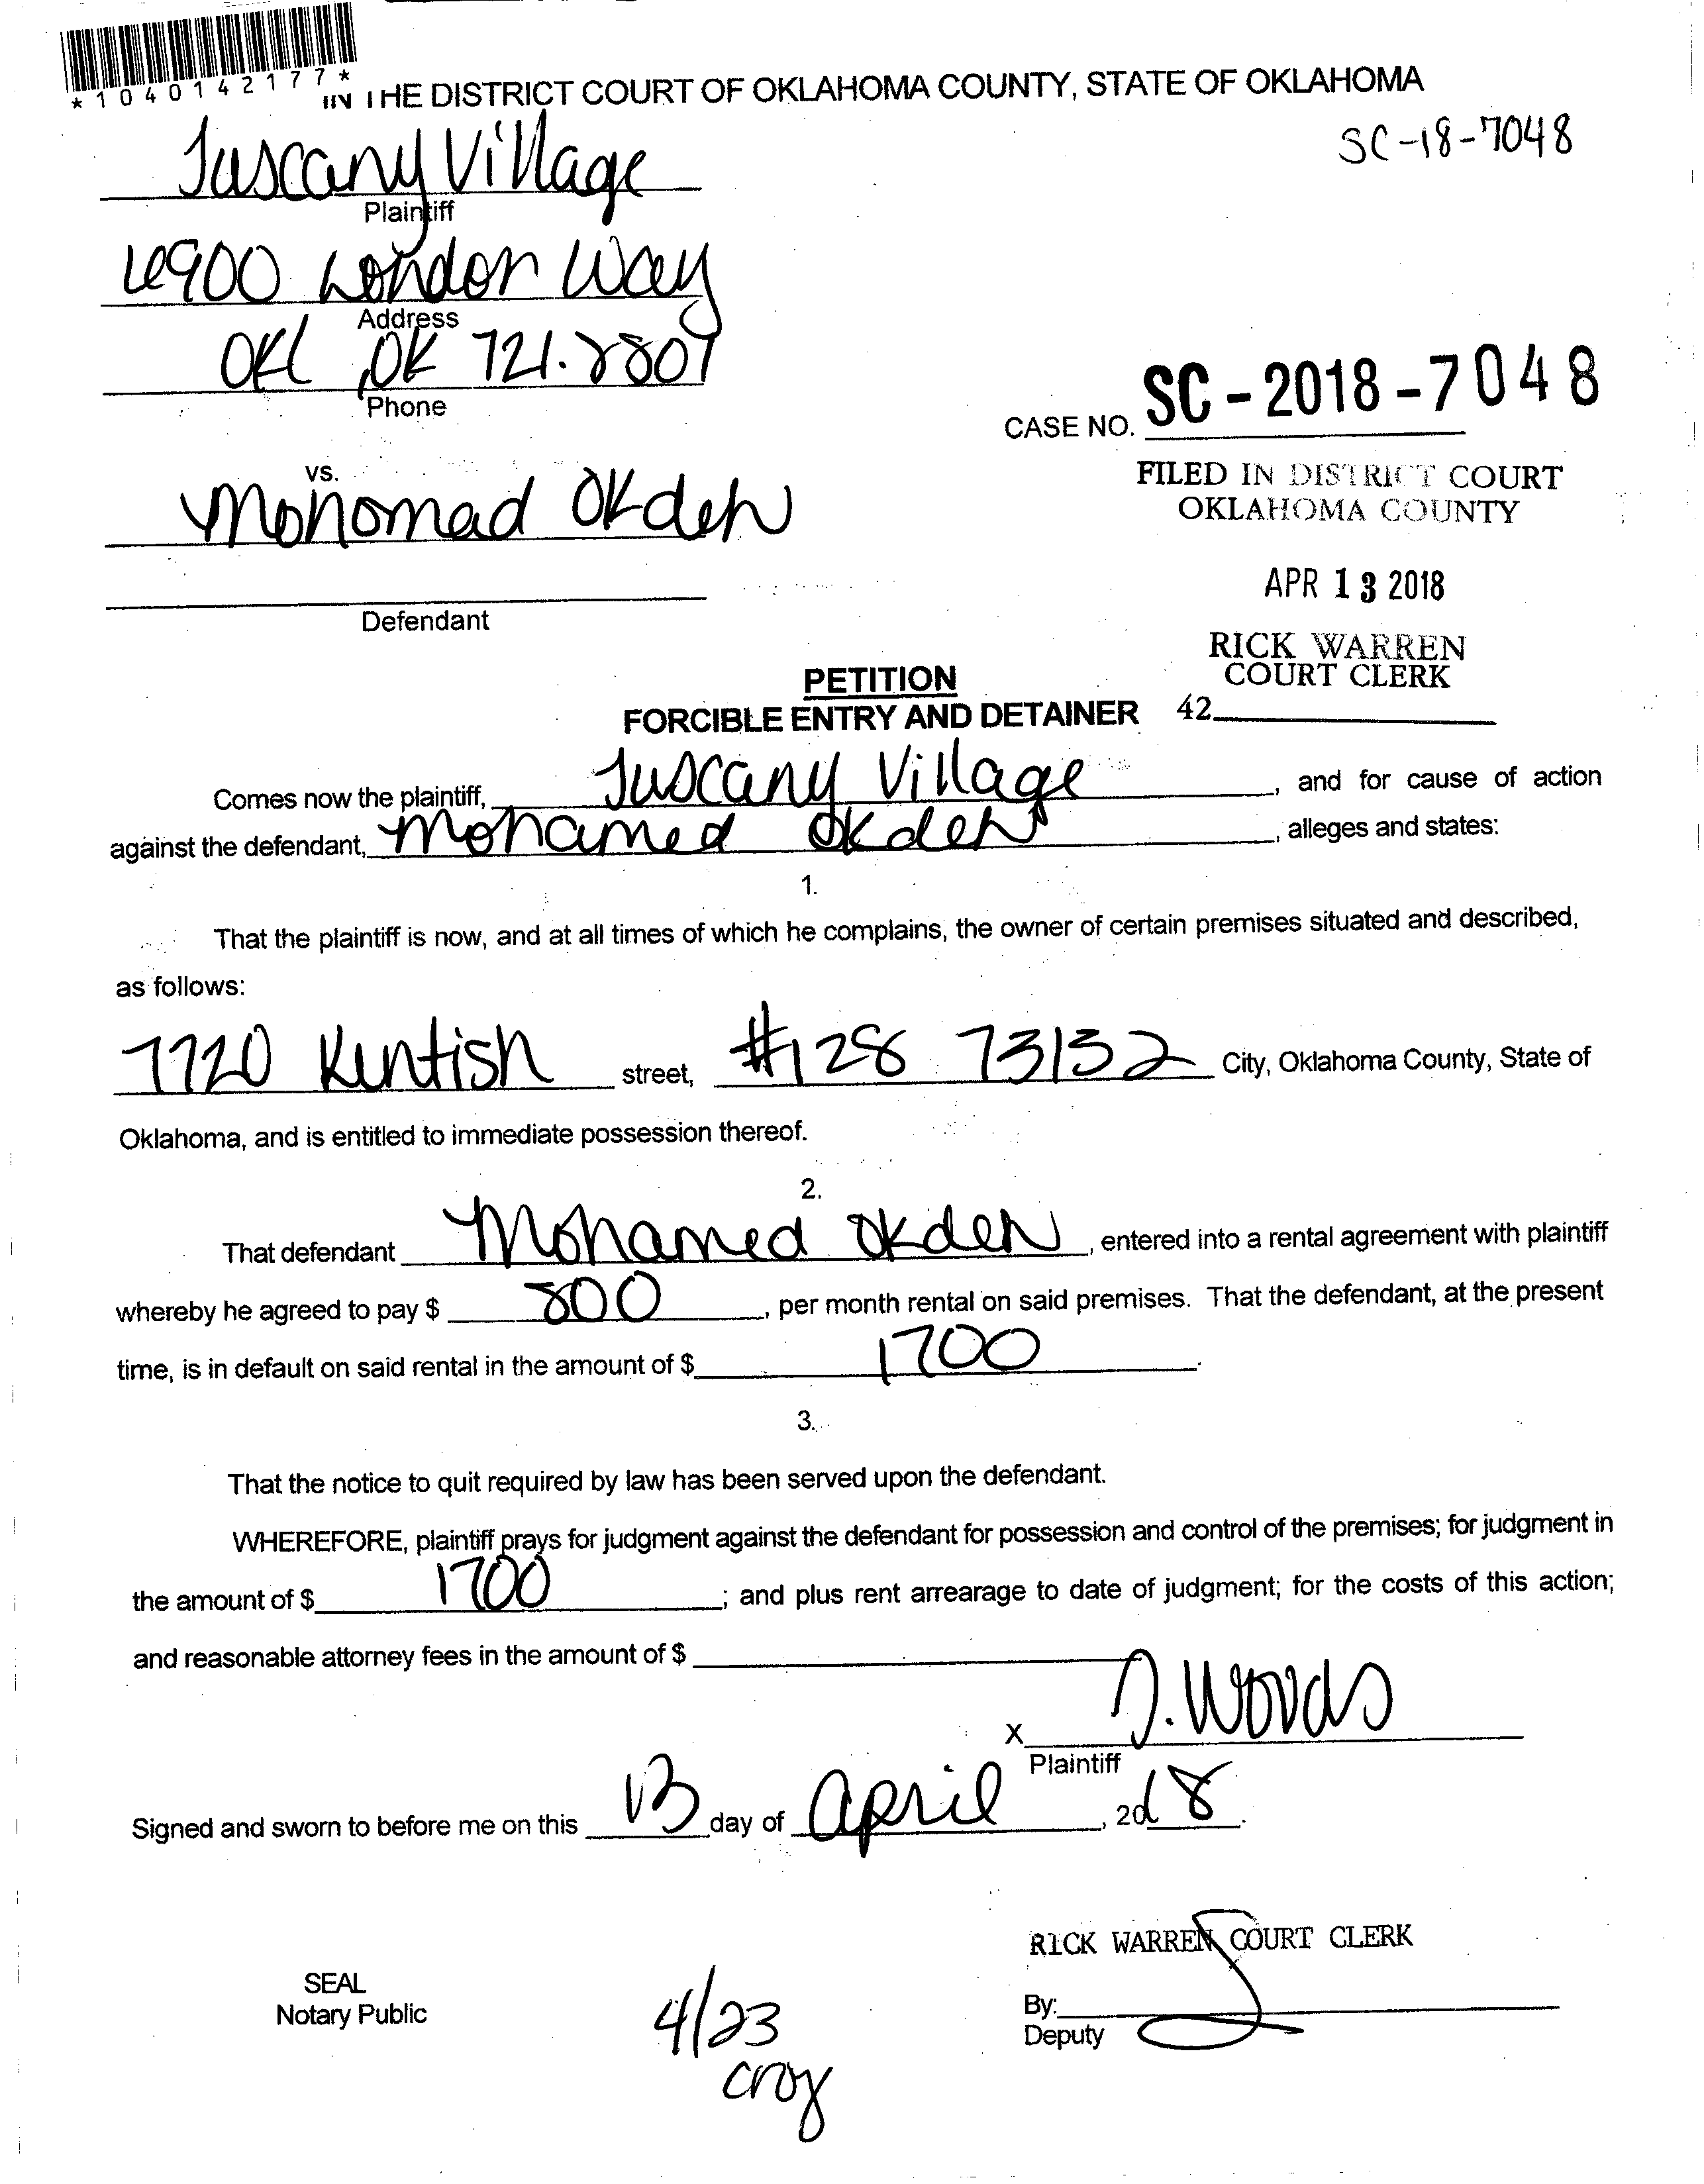 *1040142177*
IN THE DISTRICT COURT OF OKLAHOMA COUNTY, STATE OF OKLAHOMA
SC-18-7048
Tuscany Village
Plaintiff
6900 London Way
Address
OKC, OK 721.8807
Phone
CASE NO. SC-2018-7048
vs.
FILED IN DISTRICT COURT
OKLAHOMA COUNTY
Mohomad Okdeh
APR 13 2018
Defendant
RICK WARREN
COURT CLERK
PETITION
FORCIBLE ENTRY AND DETAINER
42
Comes now the plaintiff, Tuscany Village, and for cause of action
against the defendant, Mohamed Okdeh, alleges and states:
1.
That the plaintiff is now, and at all times of which he complains, the owner of certain premises situated and described,
as follows:
7720 Kentish street, #128 73132 City, Oklahoma County, State of
Oklahoma, and is entitled to immediate possession thereof.
2.
That defendant Mohamed Okdeh, entered into a rental agreement with plaintiff
whereby he agreed to pay $ 800, per month rental on said premises. That the defendant, at the present
time, is in default on said rental in the amount of $ 1700.
3.
That the notice to quit required by law has been served upon the defendant.
WHEREFORE, plaintiff prays for judgment against the defendant for possession and control of the premises; for judgment in
the amount of $ 1700; and plus rent arrearage to date of judgment; for the costs of this action;
and reasonable attorney fees in the amount of $
X J. Woods
Plaintiff
Signed and sworn to before me on this 13 day of April, 2018.
RICK WARREN COURT CLERK
SEAL
Notary Public
By:
Deputy
4/23